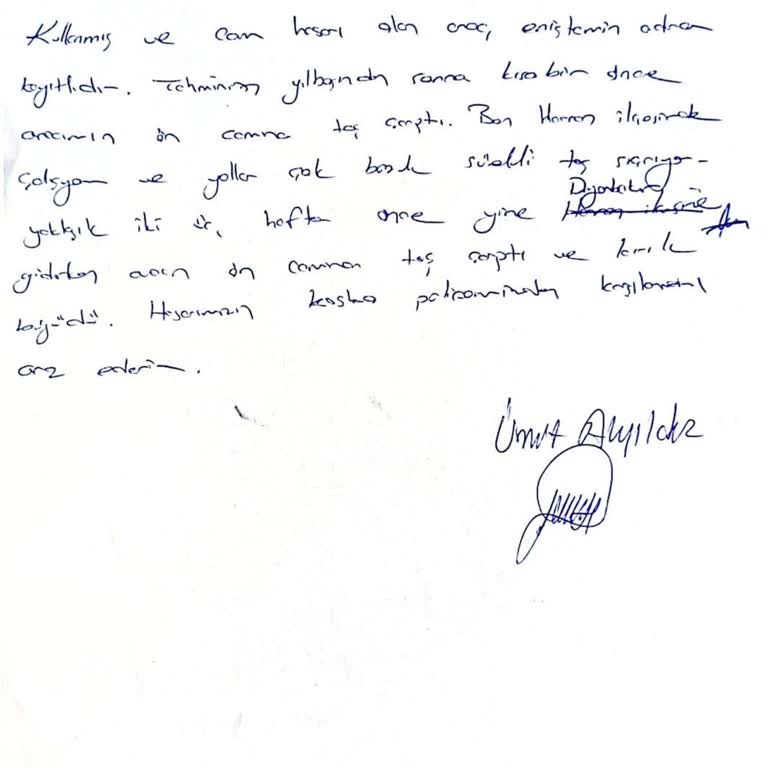 Kullanmış ve cam hasarı olan araç, eniştemin adına
kayıtlıdır. Tahminim yılbaşından sonra kısa bir önce
aracımın ön camına taş çarptı. Ben Harran ilçesinde
çalışıyom ve yollar çok bozuk sürekli taş sıçrıyor
Diyarbakıra
yaklaşık iki üç hafta önce yine
giderken aracın ön camına taş çarptı ve kırık
büyüdü. Hasarımızın kasko poliçemizden karşılanmasını
arz ederim.
Ümit Akyıldız